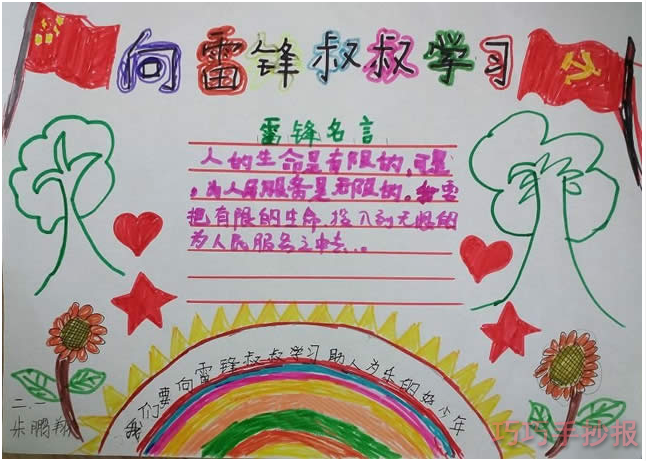 向雷锋叔叔学习
雷锋名言
人的生命是有限的,可是
,为人民服务是无限的。我要
把有限的生命投入到无限的
为人民服务之中去。。
我们要向雷锋叔叔学习助人为乐的好少年
二.一
朱鹏翔
巧巧手抄报